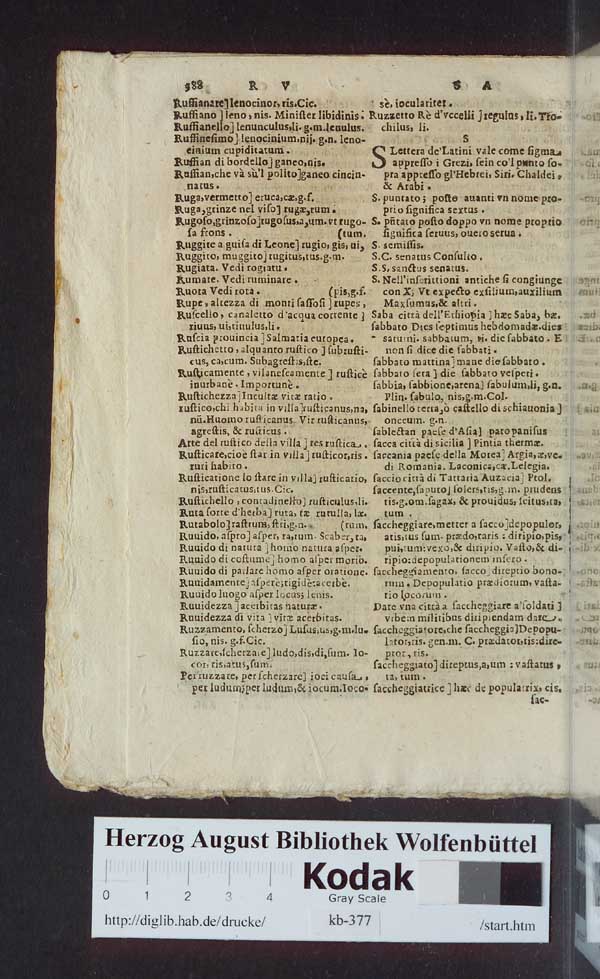 588 R V S A
Ruſſianare] lenocinor, ris. Cic.
Ruffiano ] leno, nis. Miniſter libidinis.
Ruffianello] lenunculus, li. g.m. lenulus.
Ruffineſimo] lenocinium, nij. g.n. leno-
cinium cupiditatum.
Ruffian di bordello] ganeo, nis.
Ruffian, che và sù'l polito] ganeo cincin-
natus.
Ruga, vermetto] eruca, cæ, g.f.
Ruga, grinze nel viſo] rugæ, rum.
Rugoſo, grinzoſo] rugoſus, a, um. vt rugo-
ſa frons. (tum.
Ruggite a guiſa di Leone] rugio, gis, ui,
Ruggito, muggito] rugitus, tus. g.m.
Rugiata. Vedi rogiatu.
Rumare. Vedi ruminare.
Ruota Vedi rota. (pis, g.f.
Rupe, altezza di monti ſaſſoſi ] rupes,
Ruſcello, canaletto d'acqua corrente ]
riuus, ui. tinulus, li.
Ruſcia prouincia] Salmatia europea.
Ruſtichetto, alquanto ruſtico ] ſubruſti-
cus, ca, cum. Subagreſtis, ſte.
Ruſticamente, vilaneſcamente ] ruſticè
inurbanè. Importunè.
Ruſtichezza] Incultæ vitæ ratio.
ruſtico, chi habita in villa] ruſticanus, na,
nū. Huomo ruſticanus. Vir ruſticanus,
agreſtis, & ruſticus.
Arte del ruſtico della villa ] res ruſtica.
Ruſticare, cioè ſtar in villa] ruſticor, ris.
ruri habito.
Ruſticatione lo ſtare in villa] ruſticatio,
nis. ruſticatus, tus. Cic.
Ruſtichello, contadinello] ruſticulus, li.
Ruta ſorte d'herba] ruta, tæ rutulla, læ.
Rutabolo] raſtrum, ſtri, g.n. (rum.
Ruuido, aſpro] aſper, ra, rum. Scaber, ra,
Ruuido di natura ] homo natura aſper.
Ruuido di coſtume] homo aſper morio.
Ruuido di parlare homo aſper oratione.
Ruuidamente] aſperè; rigidè: acerbè.
Ruuido luogo aſper locus; lenis.
Ruuidezza ] acerbitas naturæ.
Ruuidezza di vita ] vitæ acerbitas.
Ruzzamento, ſcherzo] Luſus, us, g.m. lu-
ſio, nis. g.f. Cic.
Ruzzare, ſcherzare] ludo, dis, di, ſum. Io-
cor, ris, atus, ſum.
Per ruzzare, per ſcherzare] ioci cauſa,
per ludum; per ludum, & iocum. Ioco-
sè, iocularitet.
Ruzzetto Rè d'vccelli ] regulus, li. Tro-
chilus, li.
S
S Lettera de'Latini vale come ſigma
appreſſo i Grezi, ſein co'l punto ſo-
pra appreſſo gl'Hebrei, Siri. Chaldei,
& Arabi.
S. puntato; poſto auanti vn nome pro-
prio ſignifica sextus.
S. pūtato poſto doppo vn nome proprio
ſignifica ſeruus, ouero serua.
S. ſemiſſis.
S.C. senatus Conſulto.
S.S, sanctus senatus.
S. Nell'inſcrittioni antiche ſi congiunge
con X; Vt expecto exſilium, auxilium
Maxſumas, & altri.
Saba città dell'Ethiopia ] hæc Saba, bæ.
ſabbato Dies ſeptimus hebdomadæ. dies
saturni. sabbatum, ti. die ſabbato. E
non ſi dice die ſabbati.
ſabbato mattina ] mane die ſabbato.
ſabbato ſera ] die ſabbato veſperi.
ſabbia, ſabbione, arena] ſabulum, li, g.n.
Plin. ſabulo, nis, g.m. Col.
ſabinello terra, ò caſtello di schiauonia ]
oneeum. g.n.
ſableſtan paeſe d'Aſia] patopaniſus
ſacca città di sicilia ] Pintia thermæ.
ſaccania paeſe della Morea] Argia, æ, ve.
di Romania. Laconica, cæ. Lelegia.
ſaccio città di Tattaria Auzacia] Ptol.
ſaccente, ſaputo] ſolers, tis, g.m. prudens
tis. g. om. ſagax, & prouidus, ſcitus, ta,
tum.
ſaccheggiare, metter a ſacco] depopulor,
atis, tus ſum. prædo, taris: diripio, pis,
pui, tum: vexo, & diripio. Vaſto, & di-
ripio: depopulationem infero.
ſaccheggiamento, ſacco] direptio bono-
rum. Depopulatio prædiorum, vaſta-
tio locorum.
Dare vna città a ſaccheggiare a'ſoldati ]
vrbem militibus diripiendam dare.
ſaccheggiatore, che ſaccheggia] Depopu-
lator, tis. gen. m. C. prædator, tis: dire-
ptor, ris.
ſaccheggiato] direptus, a, um: vaſtatus,
ta, tum.
ſaccheggiatrice ] hæc de populatrix, cis,
ſac-
Herzog August Bibliothek Wolfenbüttel
Kodak
Gray Scale
0 1 2 3 4
http://diglib.hab.de/drucke/ kb-377 /start.htm